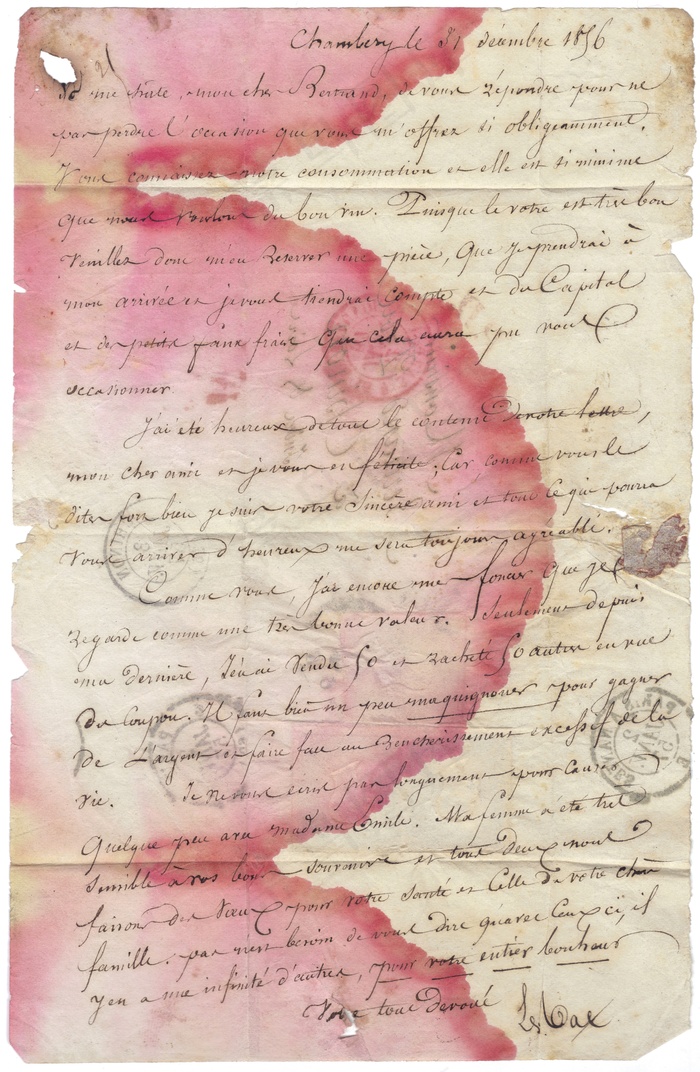 Chambéry le 31 décembre 1856
21
me hâte, mon cher Bertrand, de vous répondre pour ne
pas perdre l'occasion que vous m'offrez si obligeamment.
Vous connaissez notre consommation et elle est si minime
que nous voulons du bon vin. Puisque le votre est très bon
Veuillez donc m'en réserver une pièce, que je prendrai à
mon arrivée et je vous tiendrai compte et du Capital
et des petits faux frais que cela aura pu vous
occasionner.
J'ai été heureux de tout le contenu de votre lettre,
mon cher ami et je vous en félicite; Car, comme vous le
dites fort bien je suis votre Sincère ami et tout ce qui pourra
Vous arriver d'heureux me sera toujours agréable.
Comme vous, J'ai encore une foncier que je
regarde comme une très bonne valeur. Seulement depuis
ma dernière, J'en ai vendu 50 et racheté 50 autres en vue
du Coupon. Il faut bien un peu maquignoner pour gagner
de L'argent et faire face au Renchérissement excessif de la
vie. Je ne vous écris pas longuement pour causer
Quelque peu avec madame Emile. Ma femme a été très
Sensible à vos bons souvenirs et tous deux nous
faisons des Vœux pour votre santé et Celle de votre chère
famille. pas n'est besoin de vous dire qu'avec Ceux ci, il
y en a une infinité d'autres, pour votre entier bonheur
Votre tout dévoué